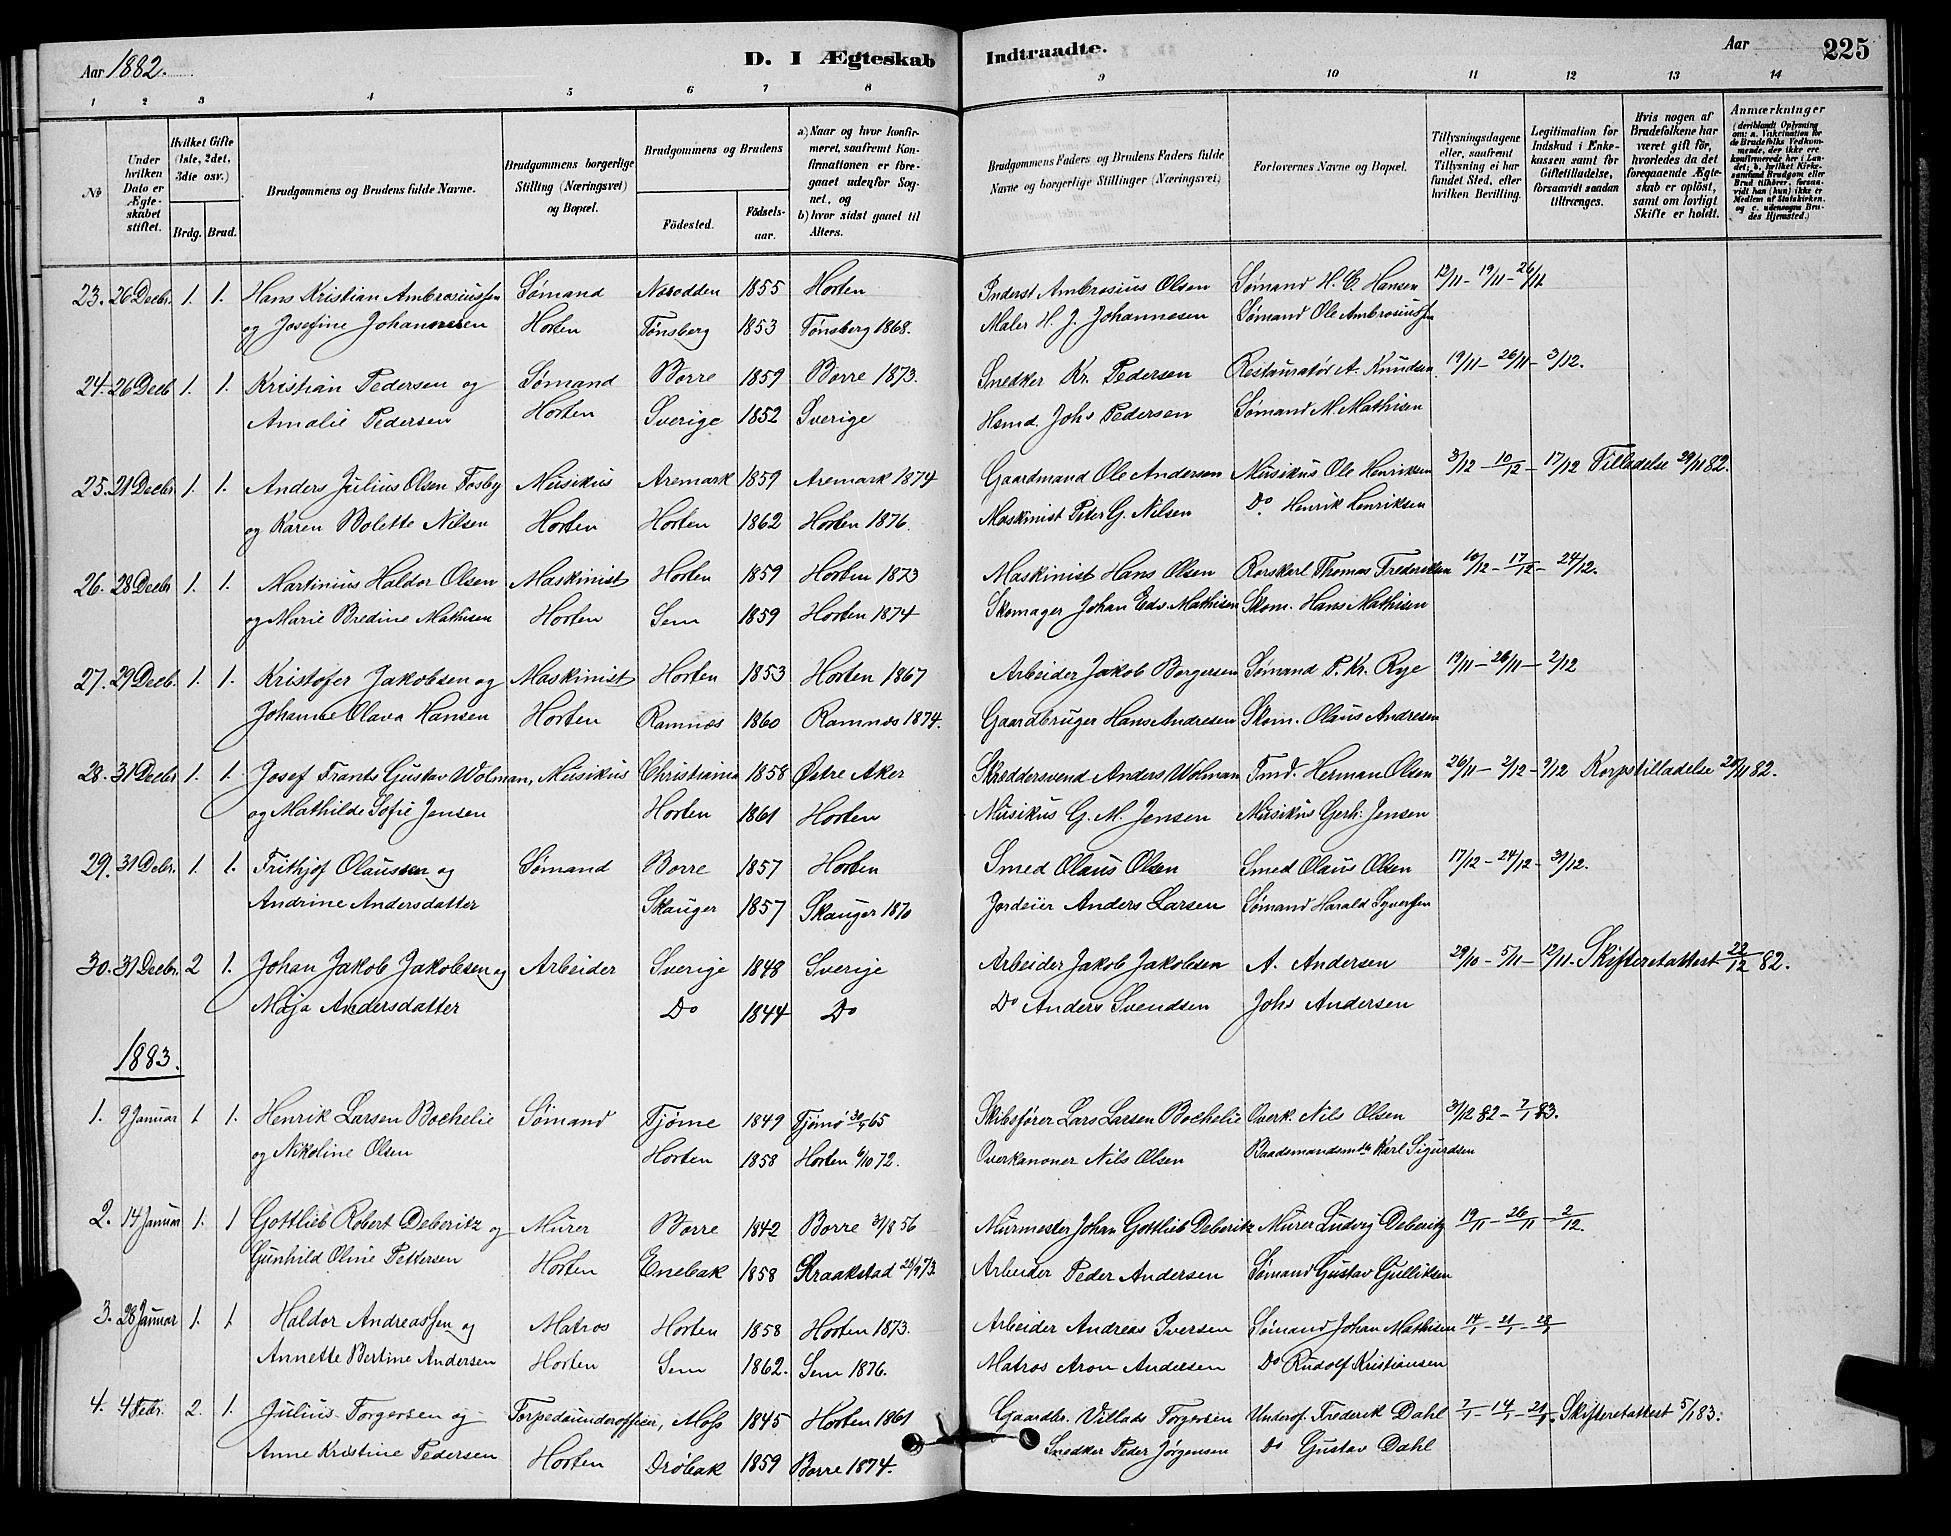 Aar 1882.
D. I Ægteskab
Indtraadte.
Aar
225
1 2 3 4 5 6 7 8 9 10 11 12 13 14
No
Under hvilken Dato er Ægteskabet stiftet.
Hvilket Gifte (1ste, 2det, 3die osv.)
Brdg. Brud.
Brudgommens og Brudens fulde Navne.
Brudgommens borgerlige Stilling (Næringsvei) og Bopæl.
Brudgommens og Brudens
Födested.
Födselsaar.
a) Naar og hvor konfirmeret, saafremt Konfirmationen er foregaaet udenfor Sognet, og
b) hvor sidst gaaet til Alters.
Brudgommens Faders og Brudens Faders fulde Navne og borgerlige Stillinger (Næringsvei)
Forlovernes Navne og Bopæl.
Tillysningsdagene eller, saafremt Tillysning ei har fundet Sted, efter hvilken Bevilling.
Legitimation for Indskud i Enkekassen samt for Giftetilladelse, forsaavidt saadan tiltrænges.
Hvis nogen af Brudefolkene har været gift för, hvorledes da det foregaaende Ægteskab er oplöst, samt om lovligt Skifte er holdt.
Anmærkninger
(deriblandt Oplysning om: a. Vakcination for de Brudefolks Vedkommende, der ikke ere konfirmerede her i Landet, b. hvilket Kirkesamfund Brudgom eller Brud tilhörer, forsaavidt han (hun) ikke er Medlem af Statskirken, og c. udensogns Brudes Hjemsted.)
23. 26 Decbr. 1. 1. Hans Kristian Ambrosiussen Sømand Norodden 1855 Horten Inderst Ambrosius Olsen Sømand H. C. Hansen 12/11 - 19/11 - 26/11
og Josefine Johannesen Horten Tønsberg 1853 Tønsberg 1868. Maler H. J. Johannesen Sømand Ole Ambrosiussen
24. 26 Decb 1. 1. Kristian Pedersen og Sømand Borre 1859 Borre 1873. Snedker Kr. Pedersen Restauratør A. Knudsen 19/11 - 26/11 - 3/12.
Amalie Pedersen Horten Sverige 1852 Sverige Hsmd. Johs Pedersen Sømand M. Mathisen
25. 21 Decbr. 1. 1. Anders Julius Olsen Fosby Musikus Aremark 1859 Aremark 1874 Gaardmand Ole Andersen Musikus Ole Henriksen 3/12 - 10/12 - 17/12 Tilladelse 29/11 82.
og Karen Bolette Nilsen Horten Horten 1862 Horten 1876. Maskinist Peter G. Nilsen Do. Henrik Henriksen
26. 28 Decbr 1. 1. Martinius Haldor Olsen Maskinist Horten 1859 Horten 1873 Maskinist Hans Olsen Rorskarl Thomas Frederiksen 10/12 - 17/12 - 24/12.
og Marie Bredine Mathisen Horten Sem 1859 Horten 1874 Skomager Johan Edv. Mathisen Skom. Hans Mathisen
27. 29 Decb. 1. 1. Kristofer Jakobsen og Maskinist Horten 1853 Horten 1867 Arbeider Jakob Borgersen Sømand P. Kr. Rye 19/11 - 26/11 - 2/12
Johanne Olava Hansen Horten Ramnæs 1860 Ramnæs 1874. Gaardbruger Hans Andresen Skom. Olaus Andresen
28. 31 Decbr 1. 1. Josef Frants Gustav Wolman, Musikus Christiania 1858 Østre Aker Skreddersvend Anders Wolman Tmd. Herman Olsen 26/11 - 2/12 - 9/12 Korpstilladelse 28/11 82.
og Mathilde Sofie Jensen Horten 1861 Horten Musikus G. M. Jensen Musikus Gerh. Jensen
29. 31 Debr. 1. 1. Frithjof Olaussen og Sømand Borre 1857 Horten Smed Olaus Olsen Smed Olaus Olsen 17/12 - 24/12 - 31/12.
Andrine Andersdatter Skauger 1857 Skauger 1870 Jordeier Anders Larsen Sømand Harald Syversen
30. 31 Decbr. 2 1. Johan Jakob Jakobsen og Arbeider Sverige 1848 Sverige Arbeider Jakob Jakobsen A. Andersen 29/10 - 5/11 - 12/11. Skifteretattest 22/12 82.
Maja Andersdatter Do 1844 Do Do Anders Svendsen Johs Andersen
1883.
1. 9 Januar 1 1. Henrik Larsen Bochelie Sømand Tjøme 1849 Tjømø 30/ 65 Skibsfører Lars Larsen Bochelie Overk. Nils Olsen 31/12 82 - 7/1 83.
og Nikoline Olsen Horten 1858 Horten 6/10 72. Overkanoner Nils Olsen Baadsmandsm Karl Sigurdsen
2. 14 Januar 1. 1 Gottlieb Robert Deberitz og Murer Borre 1842 Borre 31/8 56 Murmester Johan Gottlieb Deberitz Murer Ludvig Deberitz 19/11 - 26/11 - 2/12.
Gunhild Oline Pettersen Horten Enebak 1858 Kraakstad 28/9 73. Arbeider Peder Andersen Sømand Gustav Gulliksen
3. 28 Januar 1. 1 Haldor Andreassen og Matros Horten 1858 Horten 1873. Arbeider Andreas Iversen Sømand Johan Mathisen 14/1 - 21/1 - 28/1
Annette Bertine Andersen Horten Sem 1862. Sem 1876. Matros Aron Andersen Do Rudolf Kristiansen
4. 4 Febr. 2. 1. Julius Torgersen og Torpedounderofficier, Moss 1845 Horten 1861 Gaardbr. Villads Torgersen Underof. Frederik Dahl 7/1 - 14/1 - 21/1. Skifteretattest 5/1 83.
Anne Kristine Pedersen Horten Drøbak 1859 Borre 1874. Snedker Peder Jørgensen Do Gustav Dahl